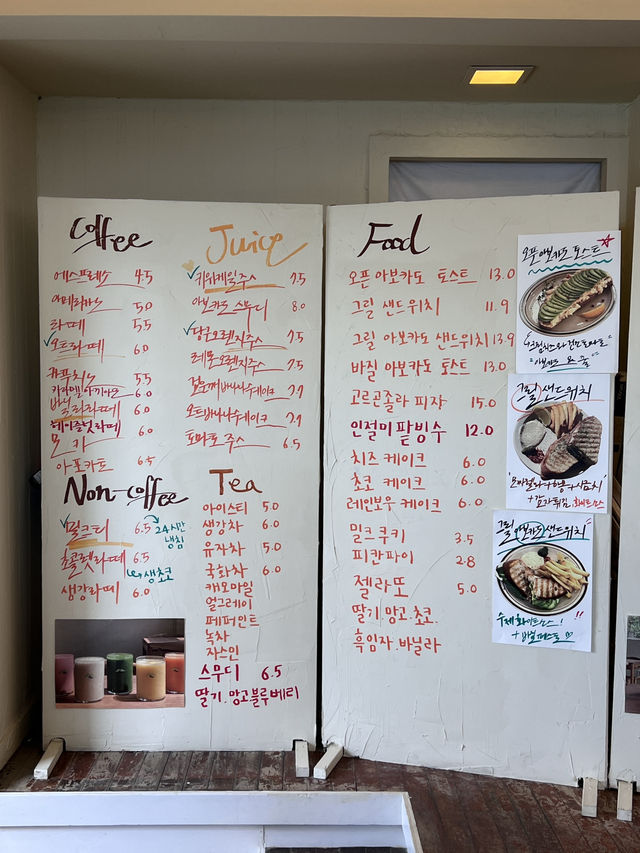 Coffee
에스프레쏘 4.5
아메리카노 5.0
라떼 5.5
오트라떼 6.0
카푸치노 5.5
카라멜마키아또 6.0
바닐라라떼 6.0
헤이즐넛라떼
모카 6.0
아포카토 6.5
Non-coffee
밀크티 6.5
24시간
냉침
초콜렛라떼 6.5
생초코
생강라떼 6.0
Juice
키위케일주스 7.5
아보카도 스무디 8.0
당근오렌지주스 7.5
레몬오렌지주스 7.5
오트바나나쉐이크
토마토 주스 6.5
Tea
아이스티 5.0
생강차 6.0
유자차 5.0
국화차 6.0
캐모마일
얼그레이
페퍼민트
녹차
자스민
스무디 6.5
딸기.망고.블루베리
Food
오픈 아보카도 토스트 13.0
그릴 샌드위치 11.9
그릴 아보카도 샌드위치 13.9
바질 아보카도 토스트 13.0
고르곤졸라 피자 15.0
인절미 팥빙수 12.0
치즈 케이크 6.0
초코 케이크 6.0
레인보우 케이크 6.0
밀크쿠키 3.5
피칸파이 2.8
젤라또 5.0
딸기.망고.초코.
흑임자.바닐라
오픈 아보카도 토스트
그릴 샌드위치
그릴 아보카도 샌드위치
수제 화이트소스!
+ 바질페스토